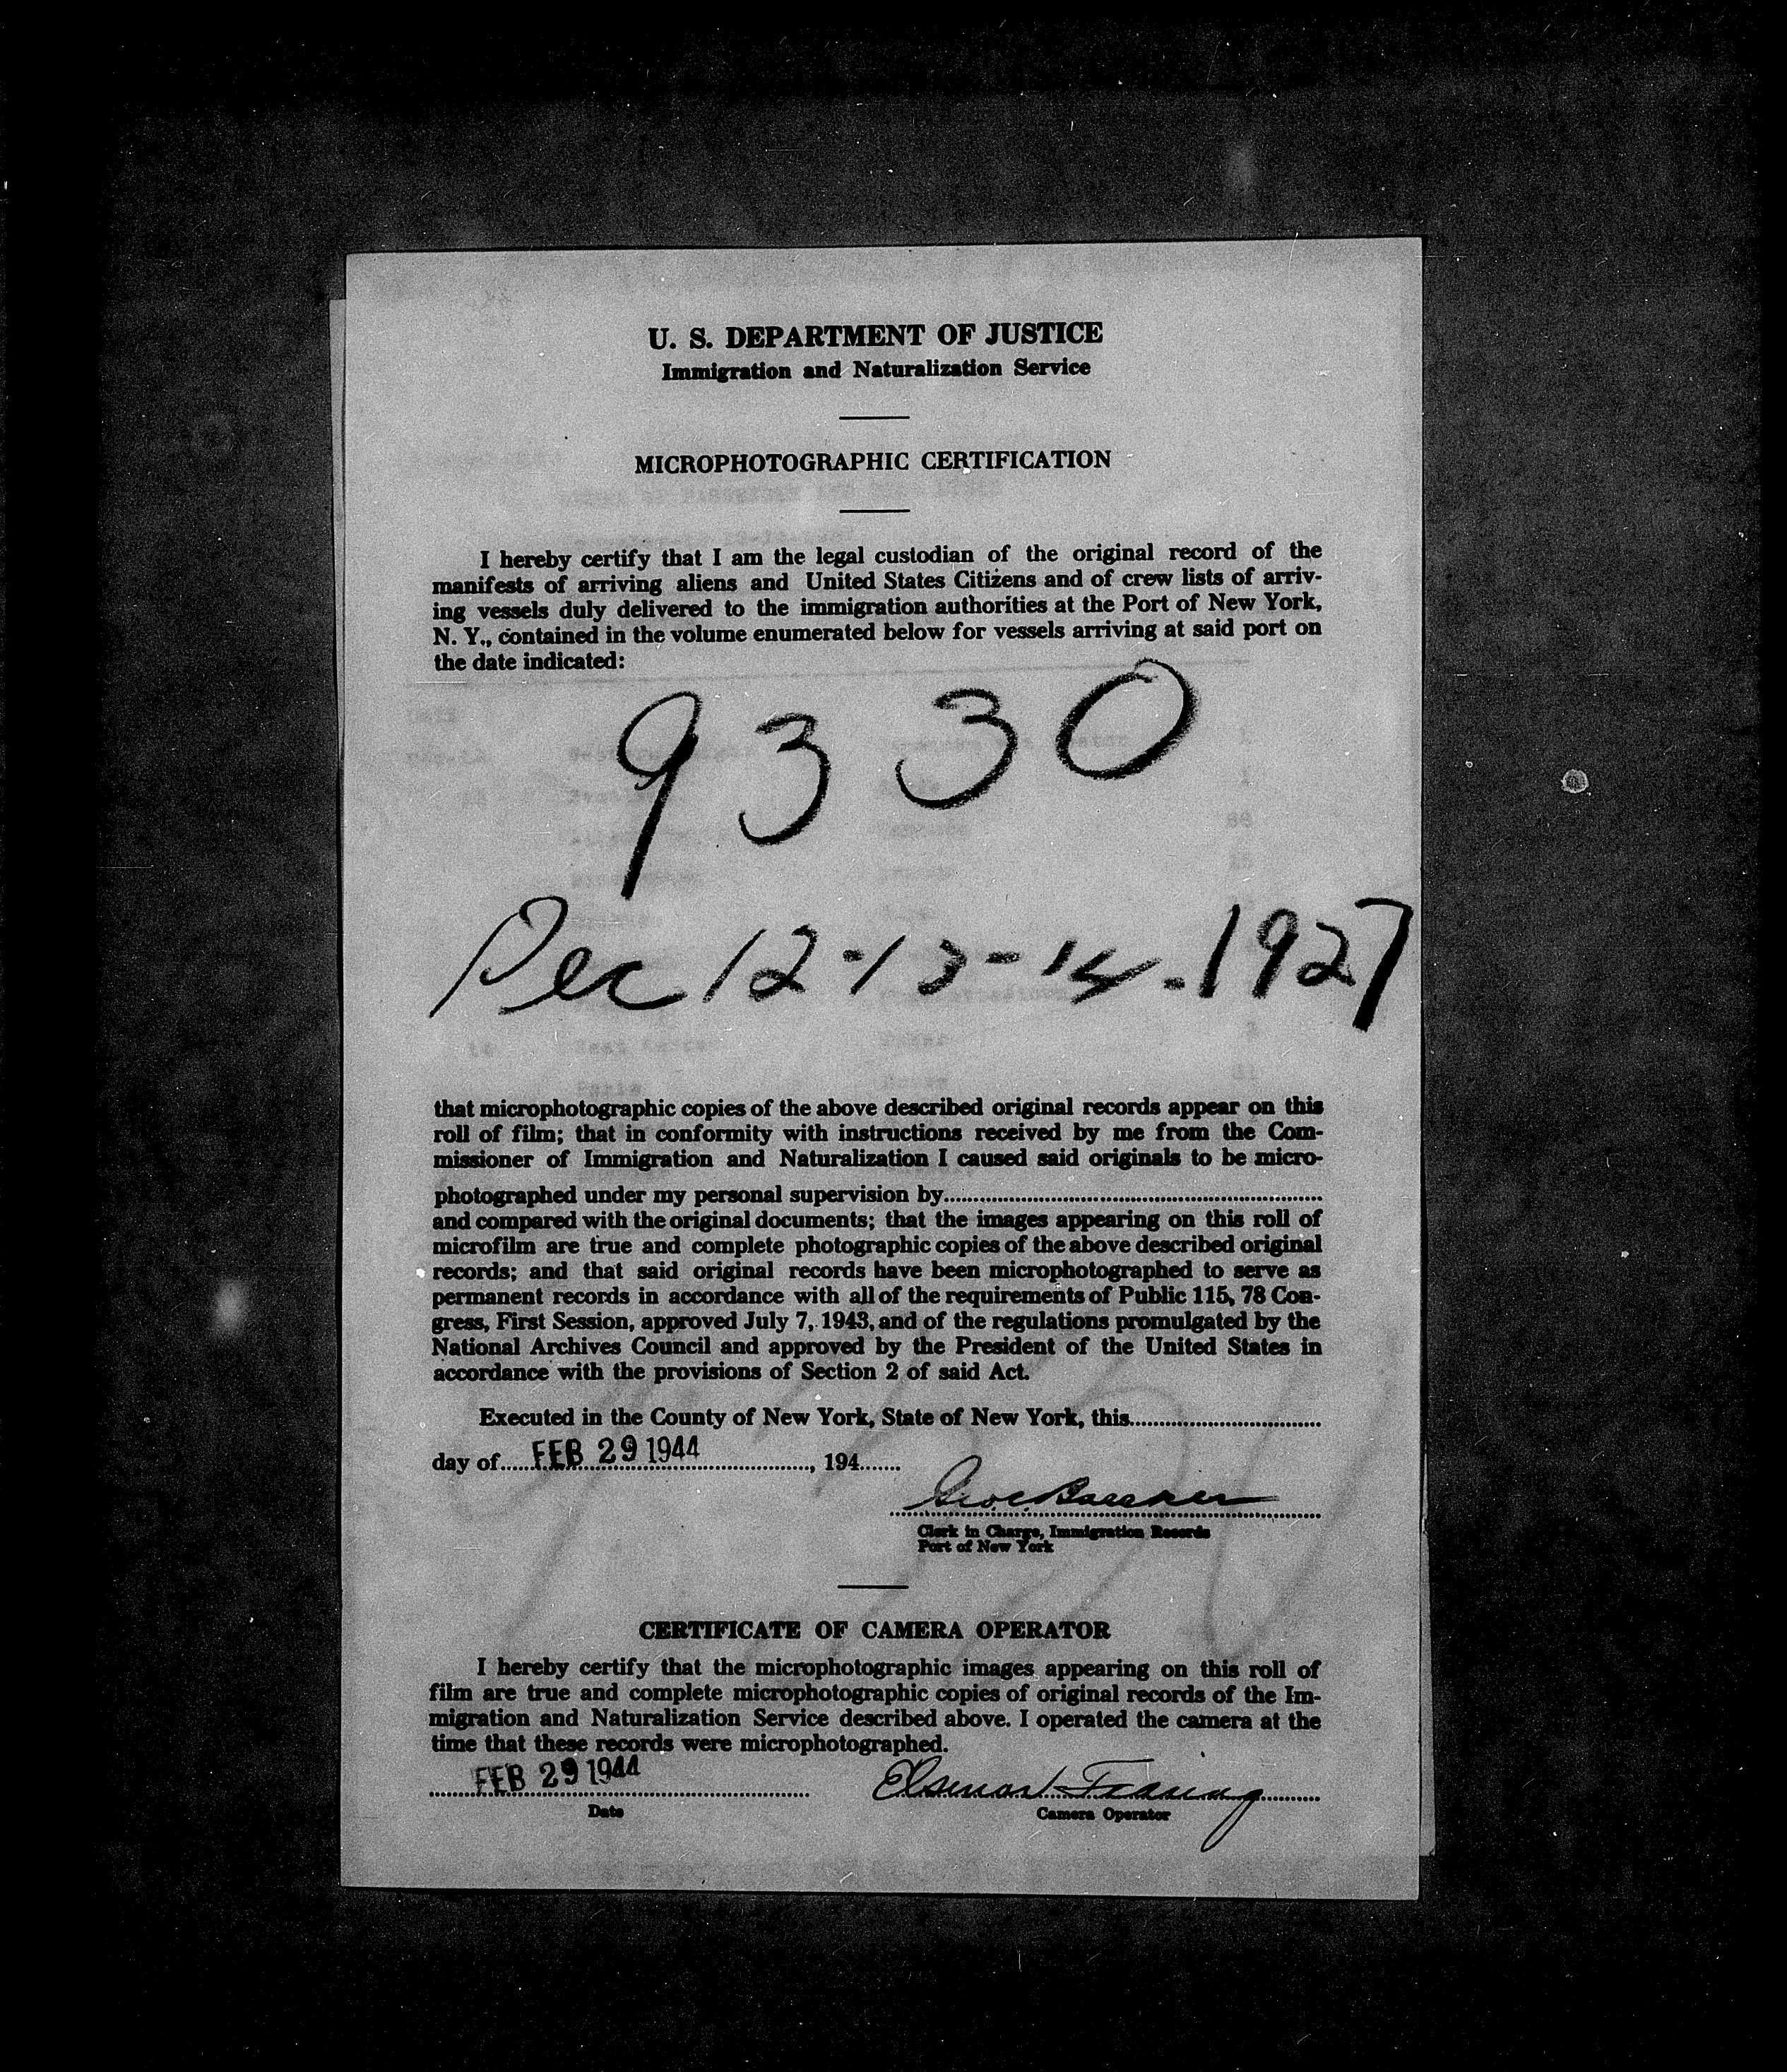 U. S. DEPARTMENT OF JUSTICE
Immigration and Naturalization Service
MICROPHOTOGRAPHIC CERTIFICATION
I hereby certify that I am the legal custodian of the original record of the
manifests of arriving aliens and United States Citizens and of crew lists of arriv-
ing vessels duly delivered to the immigration authorities at the Port of New York,
N. Y., contained in the volume enumerated below for vessels arriving at said port on
the date indicated:
9330
Dec 12-13-14-1927
that microphotographic copies of the above described original records appear on this
roll of film; that in conformity with instructions received by me from the Com-
missioner of Immigration and Naturalization I caused said originals to be micro-
photographed under my personal supervision by
and compared with the original documents; that the images appearing on this roll of
microfilm are true and complete photographic copies of the above described original
records; and that said original records have been microphotographed to serve as
permanent records in accordance with all of the requirements of Public 115, 78 Con-
gress, First Session, approved July 7, 1943, and of the regulations promulgated by the
National Archives Council and approved by the President of the United States in
accordance with the provisions of Section 2 of said Act.
Executed in the County of New York, State of New York, this
day of FEB 29 1944, 194
Clerk in Charge, Immigration Records
Port of New York
CERTIFICATE OF CAMERA OPERATOR
I hereby certify that the microphotographic images appearing on this roll of
film are true and complete microphotographic copies of original records of the Im-
migration and Naturalization Service described above. I operated the camera at the
time that these records were microphotographed.
FEB 29 1944
Date
Camera Operator